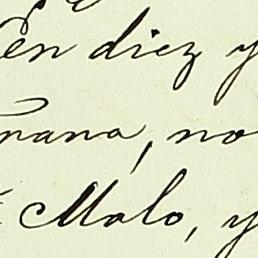 En diez y
nana, no
Malo, y